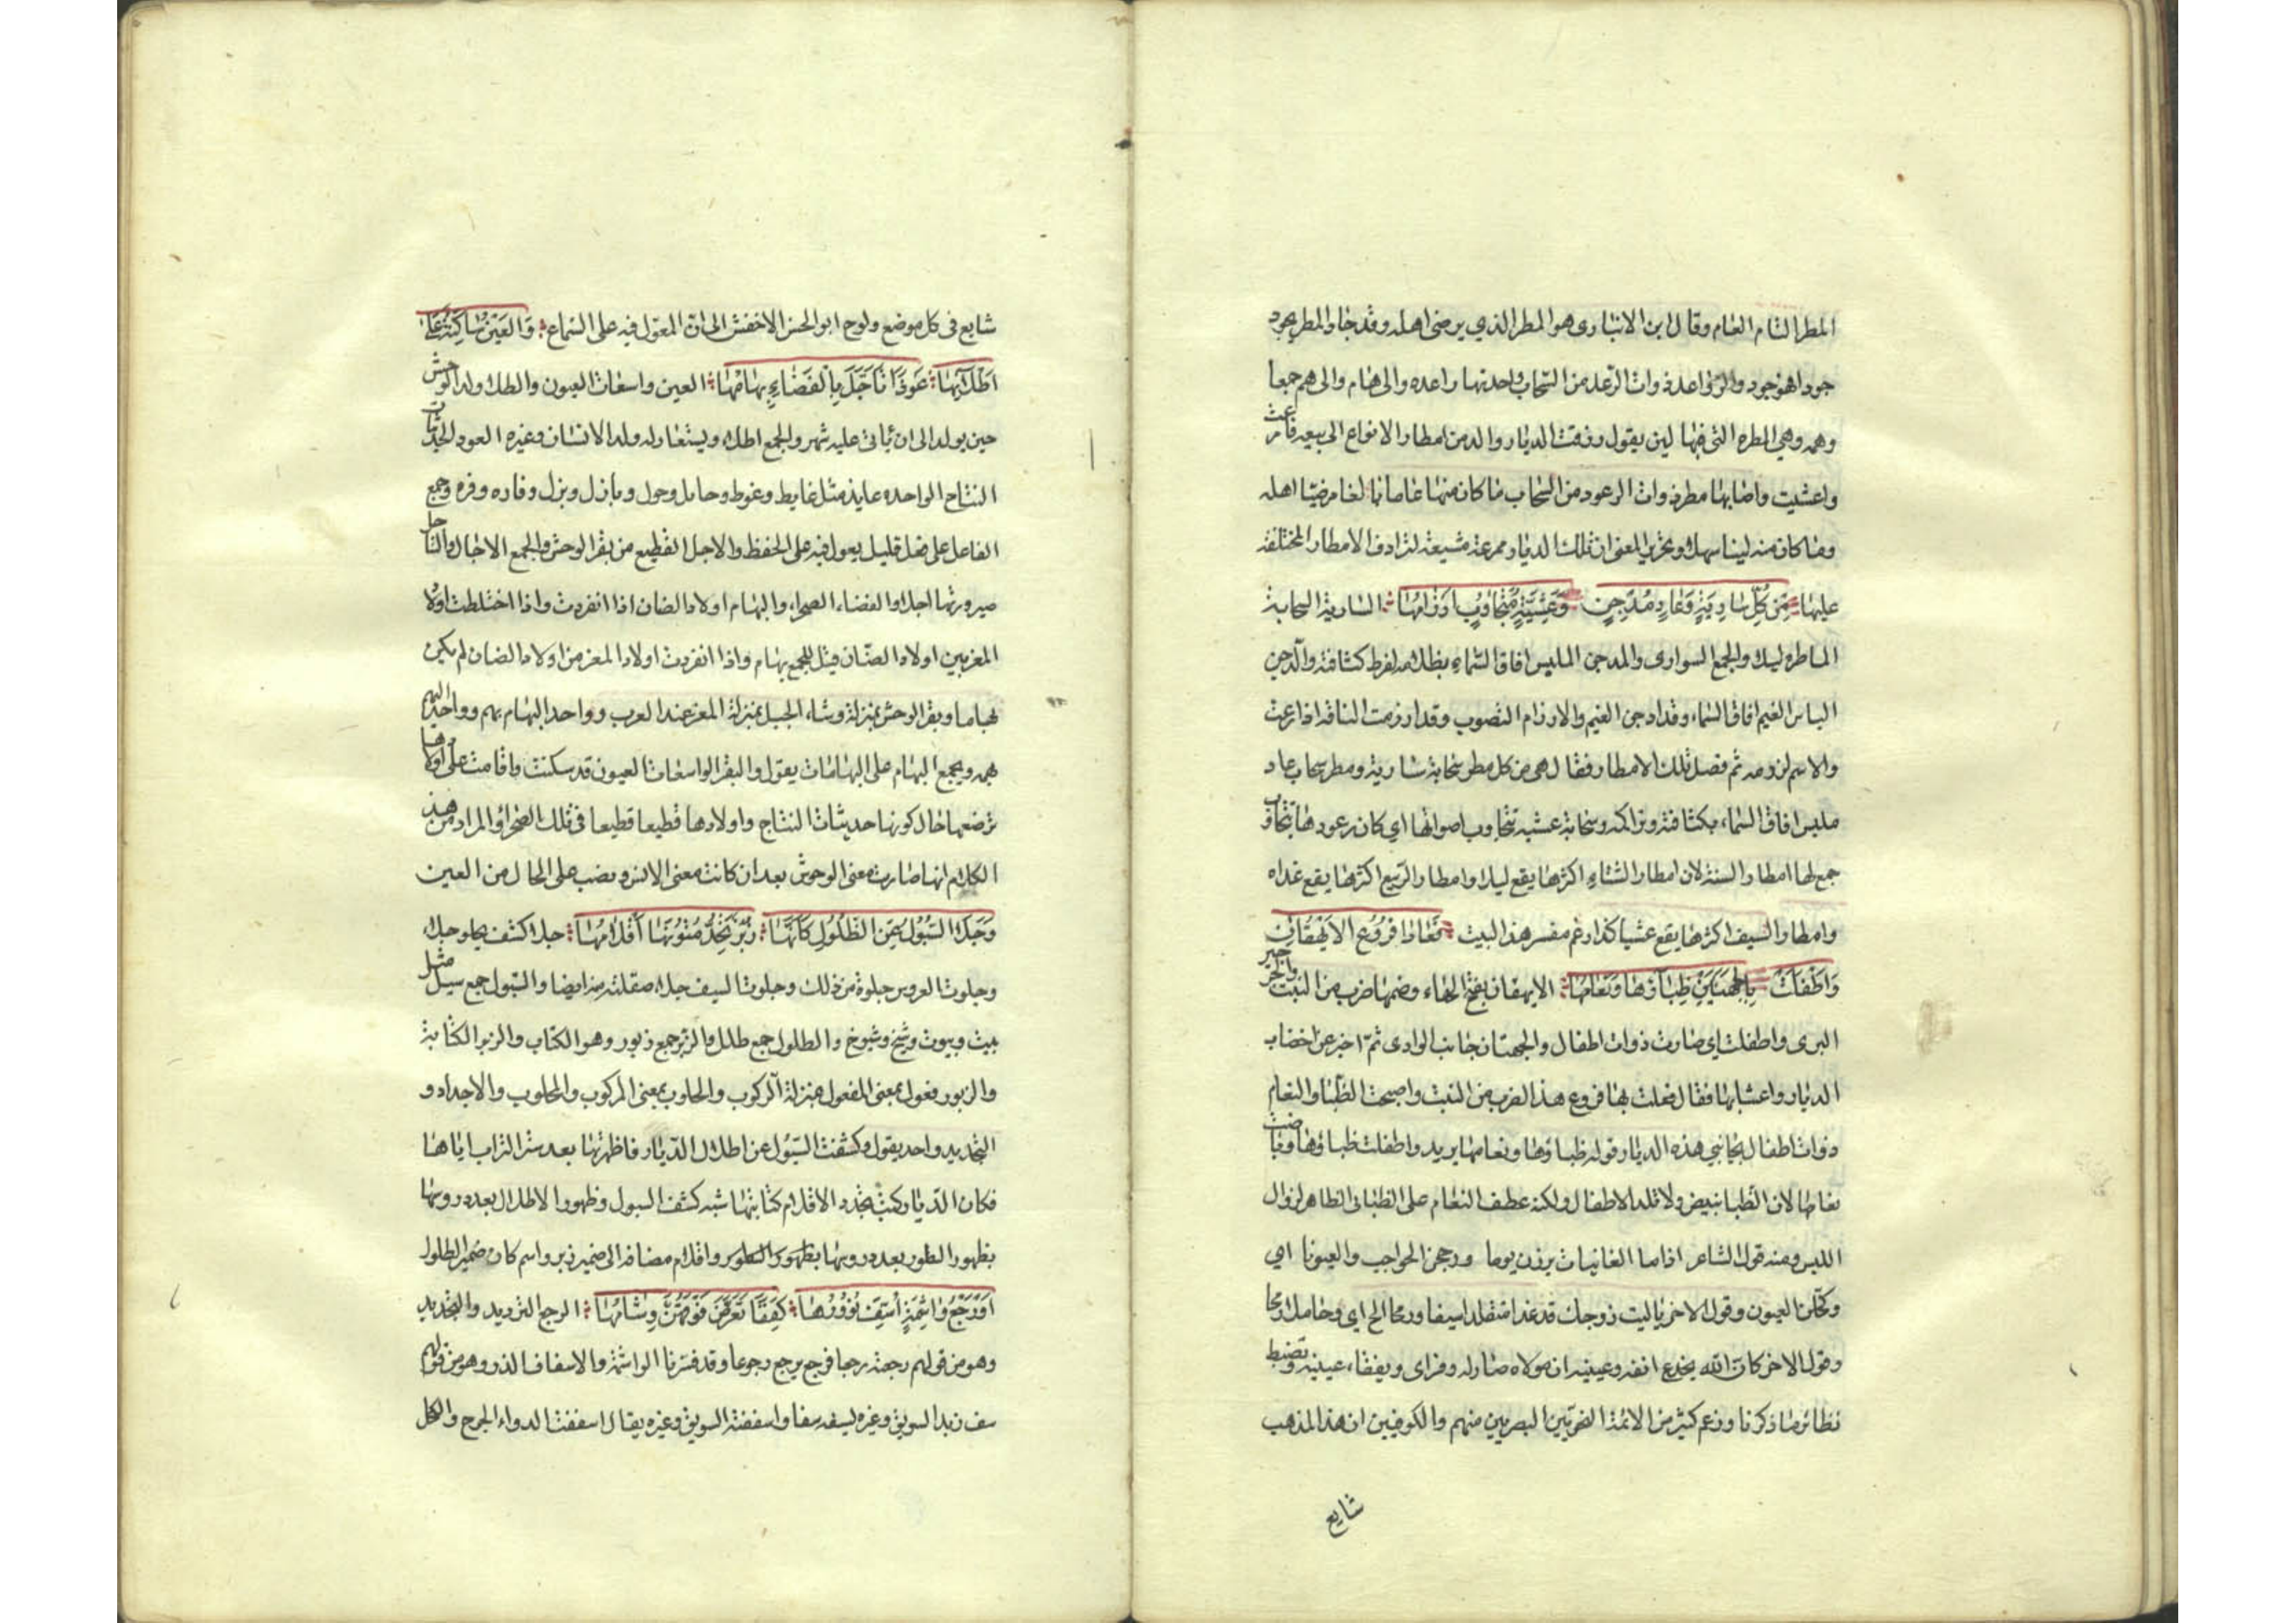 المطر التام العام وقال ابن الانباری هو المطر الذي يرضی اهله وقد جاد المطر يجود
جودا فهو جود والرواعد ذوات الرعد من السحاب واحدتها راعده والی هام والی هم جمعا
وهمه وهي المطره التی فيها لين يقول رزقت الديار والدمن امطار الانواع الربيعيه فامرعت
واعشبت واصابها مطر ذوات الرعود من السحاب ما كان منها عاما بالغا مرضيا اهله
وما كان منه لينا سهلا وتحرير المعنی ان تلك الديار ممرعة معشبة لترادف الامطار المختلفة
عليها مِن كُلِّ سَارِيَةٍ وَغَادٍ مُدْجِنٍ وَعَشِيَّةٍ مُتَجَاوِبٍ اَرْزَامُهَا السارية السحابة
الماطره ليلا والجمع السواری والمدجن الملبس افاق السماء بظلامه لفرط كثافته والدجن
الباس الغيم افاق السماء وقد ادجن الغيم والارزام التصويب وقد ارزمت الناقة اذا رغت
والاسم لرزمه ثم فصل تلك الامطار فقال هی من كل مطر سحابة سارية ومطر سحاب غاد
ملبس افاق السماء بكثافته وتراكمه وسحابة عشيه تتجاوب اصواتها اي كان رعودها تتجاوب
جمع لها امطار السنة لان امطار الشتاء اكثرها يقع ليلا وامطار الربيع اكثرها يقع غداه
وامطار الصيف اكثرها يقع عشيا كذا زعم مفسر هذا البيت فَعَلَا فُرُوعُ الايْهُقَانِ
وَاَطْفَلَتْ بِالجَلْهَتَيْنِ ظِبَاؤُهَا وَنَعَامُهَا الايهقان بفتح الهاء وضمها ضرب من النبت وهو الجرجير
البری واطفلت ای صارت ذوات اطفال والجلهتان جانبا الوادی ثم اخبر عن اخصاب
الديار واعشابها فقال فعلت بها فروع هذا الضرب من النبت واصبحت الظبا والنعام
ذوات اطفال بجانبي هذه الديار وقوله ظباؤها ونعامها يريد واطفلت ظباؤها وباضت
نعامها لان الظبا تبيض ولا تلد الاطفال ولكنه عطف النعام علی الظبا فی الظاهر لزوال
اللبس ومنه قول الشاعر اذا ما الغانيات برزن يوما وزججن الحواجب والعيونا ای
وكحلن العيون وقول الاخر يا ليت زوجك قد غدا متقلدا سيفا ورمحا ای وحاملا رمحا
وقول الاخر كان الله يجدع انفه وعينيه ان مولاه صار له وفر ای ويفقاء عينيه وتضبط
نظائر ما ذكرنا وزعم كثير من الائمة النحويين البصريين منهم والكوفيين ان هذا المذهب
شايع
شايع فی كل موضع ولوح ابو الحسن الاخفش الی ان المعول فيه علی السماع وَالعَيْنُ سَاكِنَةٌ عَلَی
اَطْلَائِهَا عُوذًا تَاَجَّلَ بِالفَضَاءِ بِهَامُهَا العين واسعات العيون والطلا ولد الوحش
حين يولد الی ان ياتی عليه شهر والجمع اطلاء ويستعار لولد الانسان وغيره العوذ الحديثات
النتاج الواحده عايذ مثل عايط وعوط وحايل وحول وبازل وبزل وفاره وفره وجمع
الفاعل علی فعل قليل يعول فيه علی الحفظ والاجل القطيع من بقر الوحش والجمع الاجال والتاجل
صيرورتها اجلا والفضاء الصحراء والبهام اولاد الضان اذا انفردت واذا اختلطت اولاد
المعز بين اولاد الضان قيل للجمع بهام واذا انفردت اولاد المعز من اولاد الضان لم يكن
بهاما وبقر الوحش بمنزلة وشاء الجبل بمنزلة المعز عند العرب وواحد البهام بهم وواحد البهم
بهمه ويجمع البهام علی البهامات يقول والبقر الواسعات العيون قد سكنت واقامت علی اولادها
ترضعها حال كونها حديثات النتاج واولادها قطيعا قطيعا فی تلك الصحراء والمراد من هذا
الكلام انها صارت مغنی الوحوش بعد ان كانت مغنی الانس ونصب علی الحال من العين
وَجَلَا السُّيُولُ عَنِ الطُّلُولِ كَاَنَّهَا زُبُرٌ تُجِدُّ مُتُونَهَا اَقْلَامُهَا جلا كشف يجلو جلاء
وجلوت العروس جلوة من ذلك وجلوت السيف جلاء صقلته منه ايضا والسيول جمع سيل مثل
بيت وبيوت وشيخ وشيوخ والطلول جمع طلل والزبر جمع زبور وهو الكتاب والزبر الكتابة
والزبور فعول بمعنی المفعول بمنزلة الركوب والحلوب بمعنی المركوب والمحلوب والاجداد و
التجديد واحد يقول وكشفت السيول عن اطلال الديار فاظهرتها بعد ستر التراب اياها
فكان الديار كتب تجدد الاقلام كتابتها شبه كشف السيول وظهور الاطلال بعد دروسها
بظهور السطور بعد دروسها بظهور السطور واقلام مضافه الی ضمير زبر واسم كان ضمير الطلول
اَوْ رَجْعُ وَاشِمَةٍ اُسِفَّ نَؤُورُهَا كِفَفًا تَعَرَّضَ فَوْقَهُنَّ وِشَامُهَا الرجع الترديد والتجديد
وهو من قولهم رجعته رجعا فرجع يرجع رجوعا وقد فسرنا الواشمة والاسفاف الذر وهو من قولهم
سف زيد السويق وغيره يسفه سفا واسففته السويق وغيره يقال اسففت الدواء الجرح والكحل